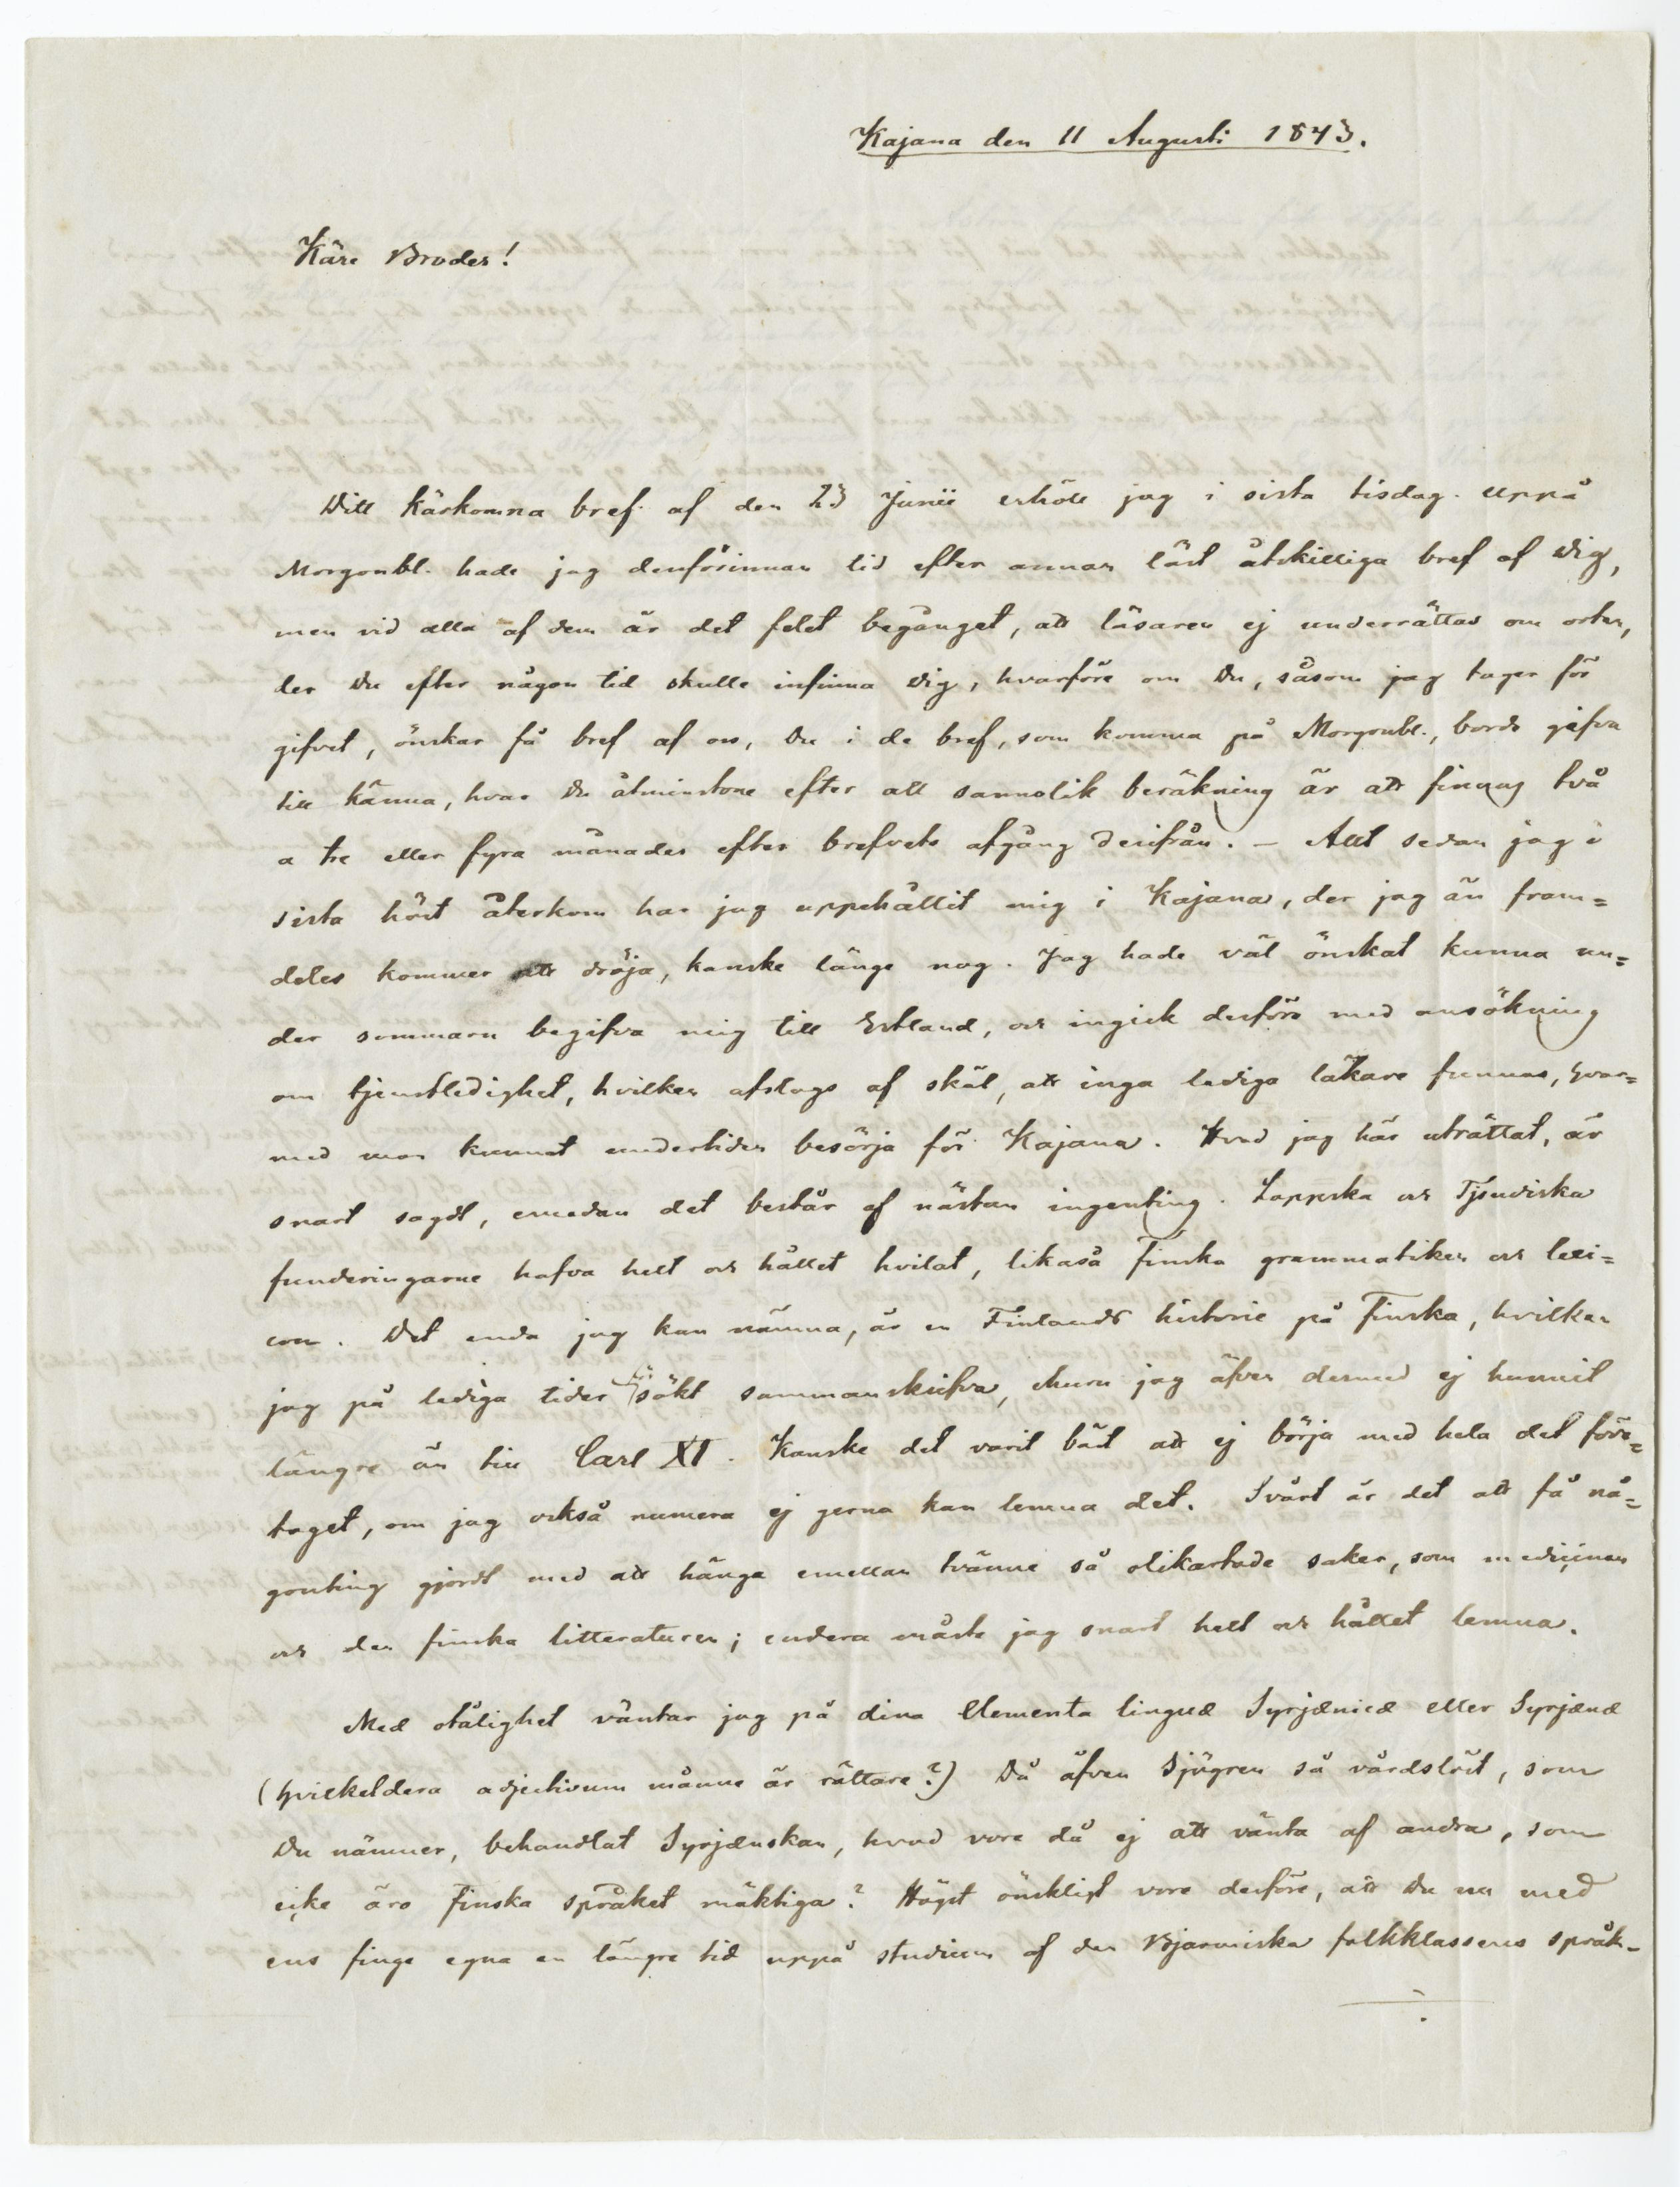 Kajana den 11 Augusti 1843.
Käre Broder!
Ditt kärkomna bref af den 23 Junii erhöll jag i sista tisdag. Uppå
Morgonbl. hade jag denförinnan tid efter annan läst åtskilliga bref af Dig,
men vid alla af dem är det felet begånget, att läsaren ej underrättas om orten,
der Du efter någon tid skulle infinna Dig, hvarföre om Du, såsom jag tager för
gifvet, önskar få bref af oss, Du i de bref, som komma på Morgonbl., borde gifva
till känna, hvar Du åtminstone efter all sannolik beräkning är att finnas två
a tre eller fyra månader efter brefvets afgång derifrån. – Allt sedan jag i
sista höst återkom har jag uppehållit mig i Kajana, der jag än fram=
deles kommer att dröja, kanske länge nog. Jag hade väl önskat kunna un=
der sommarn begifva mig till Estland, och ingick derföre med ansökning
om tjenstledighet, hvilken afslogs af skäl, att inga lediga läkare funnos, hvar=
med man kunnat undertiden besörja för Kajana. Hvad jag här uträttat, är
snart sagdt, emedan det består af nästan ingenting. Lappska och Tjudiska
funderingarne hafva helt och hållet hvilat, likaså Finska grammatiken och lexi=
con. Det enda jag kan nämna, är en Finlands historie på Finska, hvilken
jag på lediga tider här sökt sammanskrifva, ehuru jag äfven dermed ej hunnit
längre än till Carl XI. Kanske det varit bäst att ej börja med hela det före=
taget, om jag också numera ej gerna kan lemna det. Svårt är det att få nå=
gonting gjordt med att hänga emellan tvänne så olikartade saker, som medicinen
och den finska litteraturen; endera måste jag snart helt och hållet lemna.
Med otålighet väntar jag på dina Elementa linguæ Syrjænicæ eller Syrjænæ
(hvilketdera adjectivum månne är rättare?) Då äfven Sjögren så vårdslöst, som
Du nämner, behandlat Syrjænskan, hvad vore då ej att vänta af andra, som
icke äro Finska språket mäktiga? Högst önskligt vore derföre, att Du nu med
ens finge egna en längre tid uppå studium af den Bjarmiska folkklassens språk-